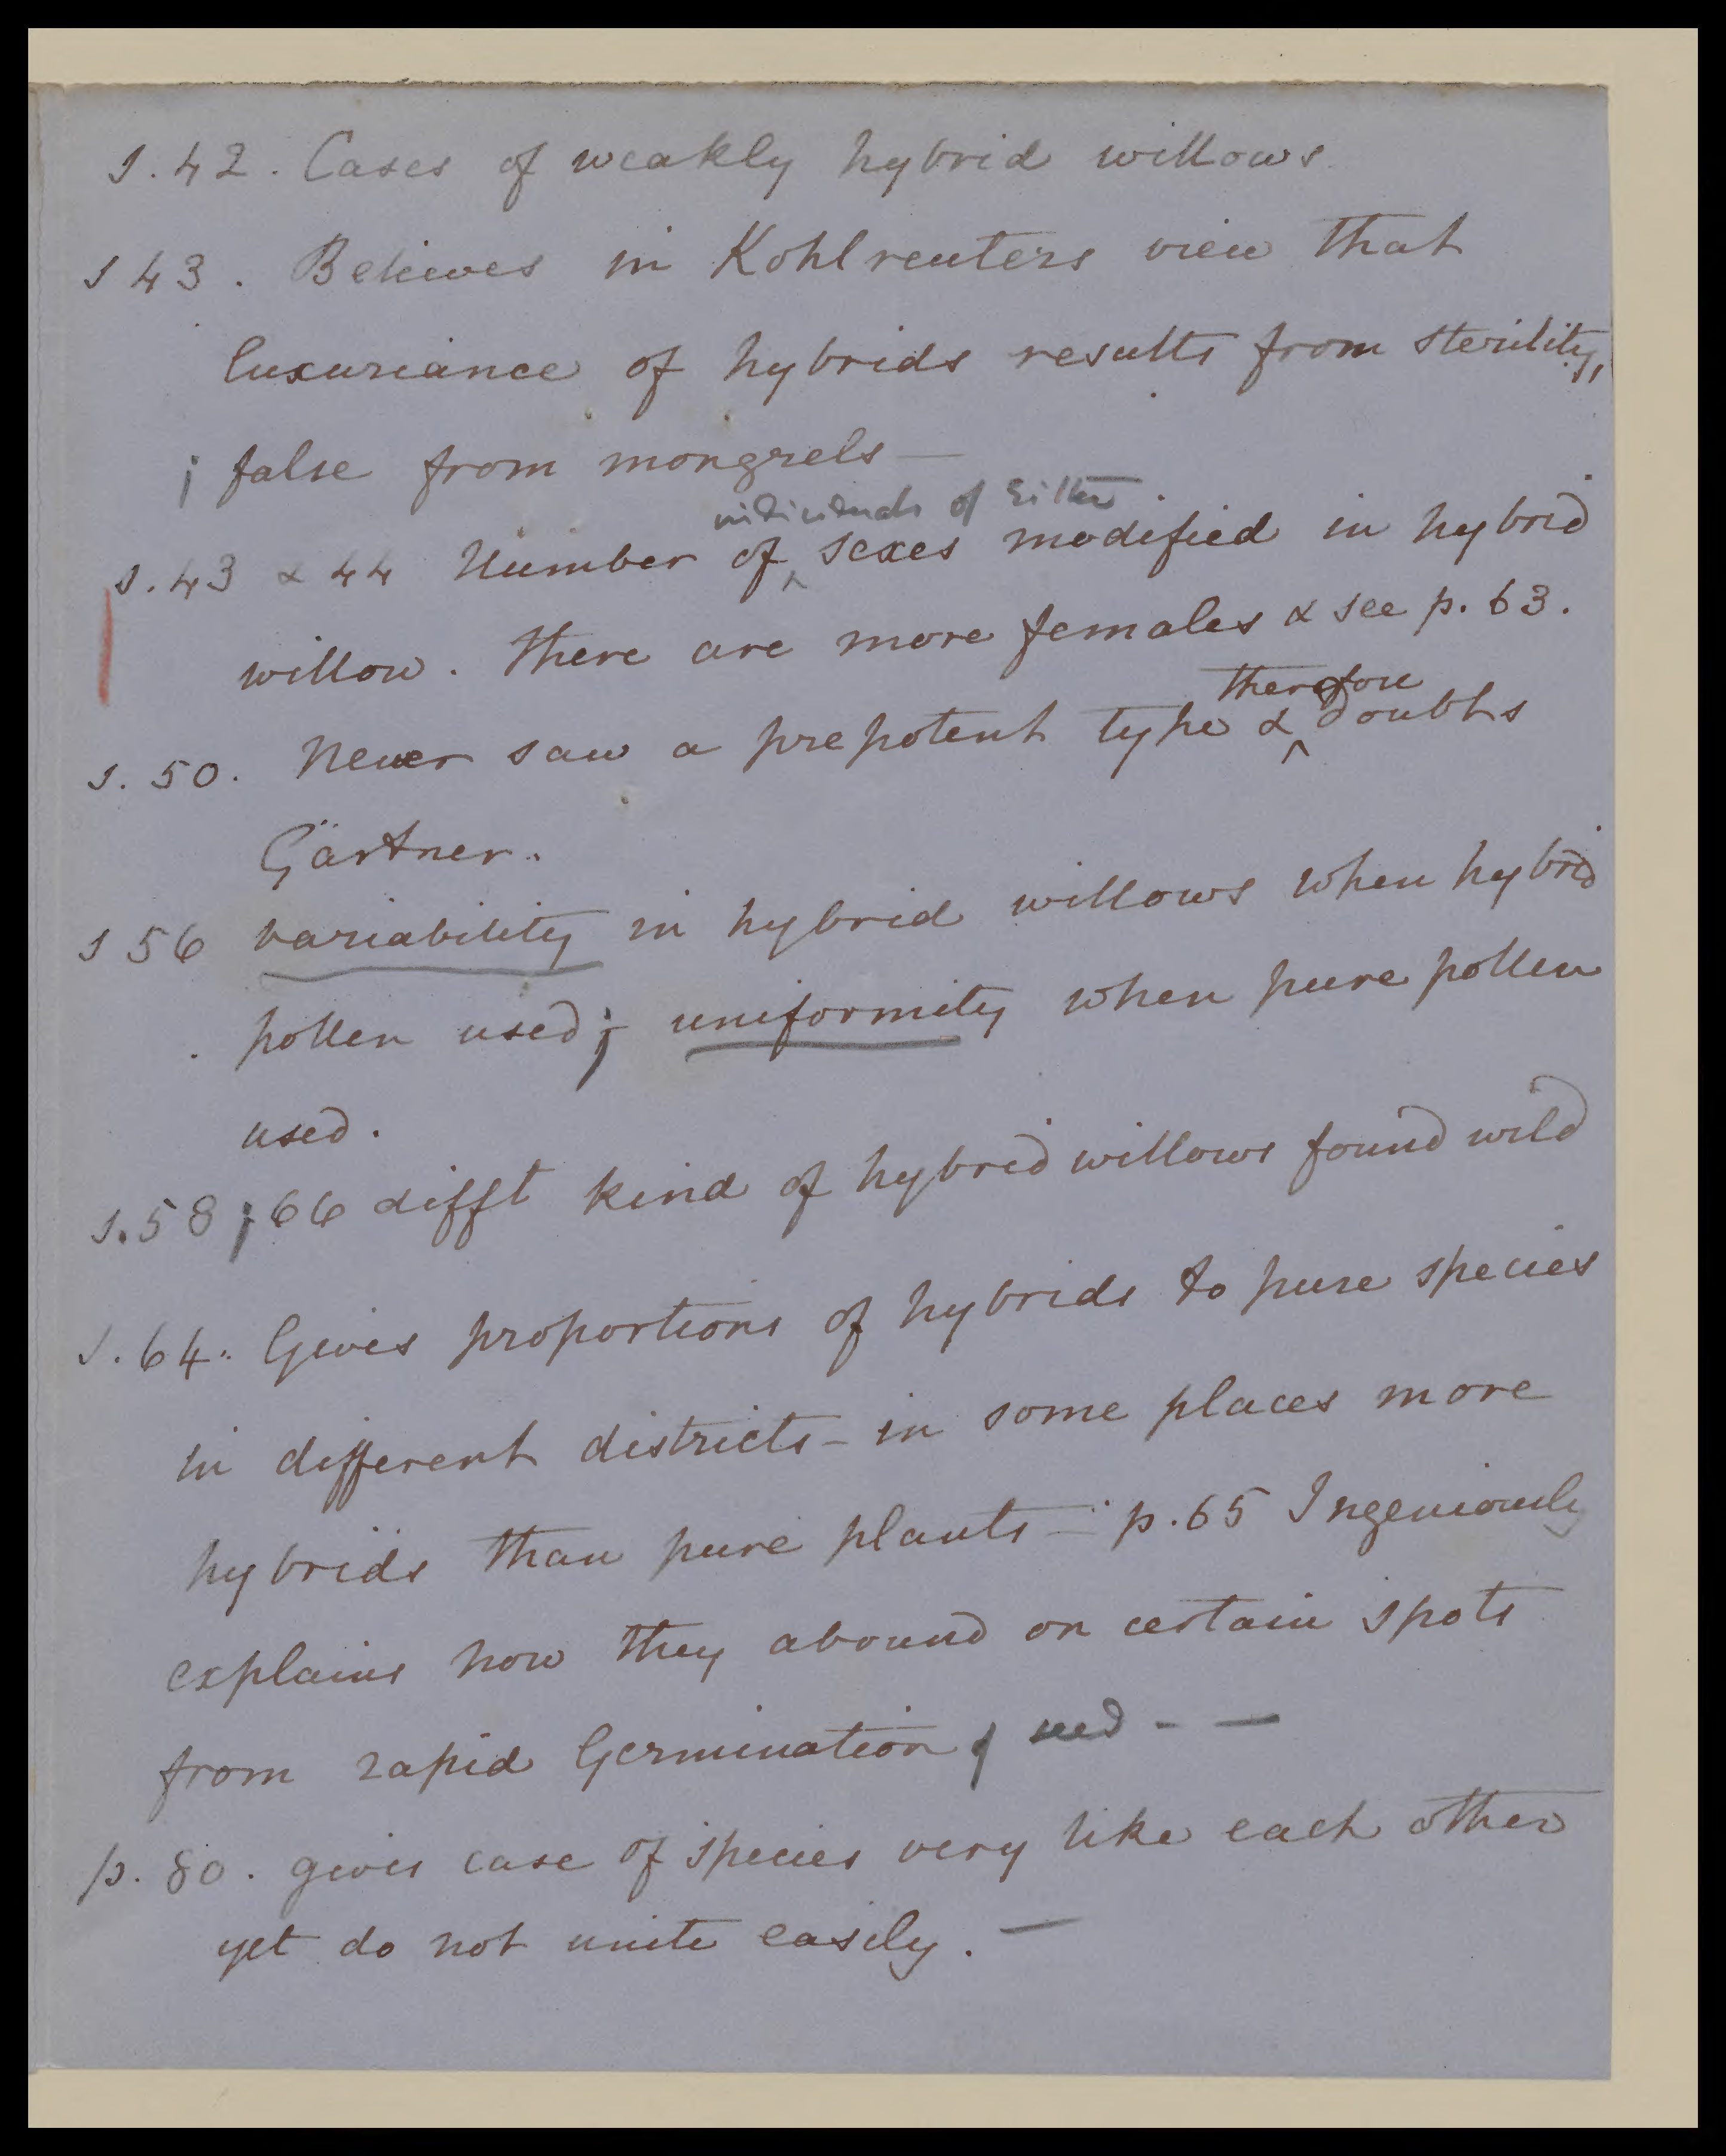 s. 42. Cases of weakly hybrid willows
s 43. Believes in Kohlreuters view that
luxuriance of hybrids results from sterility,
; false from mongrels —
individuals of either
s. 43 & 44 Number of ^ sexes modified in hybrid
willow. There are more females & see p. 63.
therefore
s. 50. Never saw a prepotent type & ^ doubts
Gärtner.
s 56 variability in hybrid willows when hybrid
pollen used; uniformity when pure pollen
used.
s. 58; 66 difft kind of hybrid willows found wild
s. 64. Gives proportions of hybrids to pure species
in different districts – in some places more
hybrids than pure plants — p. 65 Ingeniously
explains how they abound on certain spots
from rapid Germination of seed - —
p. 80. gives case of species very like each other
yet do not unite easily. —